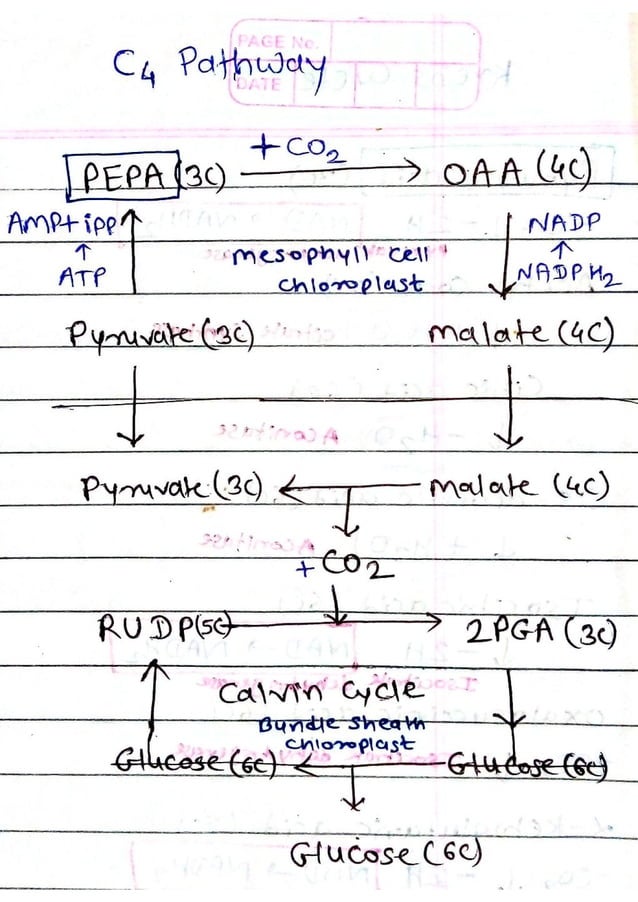 PAGE No.
DATE
C4 Pathway
PEPA (3C) +CO2 → OAA (4C)
AMP+ipp ↑ NADP
↑ mesophyll cell ↑
ATP chloroplast NADPH2
Pyruvate (3C) malate (4C)
Pyruvate (3C) ← malate (4C)
+CO2
RUDP(5C) → 2PGA (3C)
Calvin Cycle
Bundle sheath
chloroplast
Glucose (6C) ← Glucose (6C)
Glucose (6C)